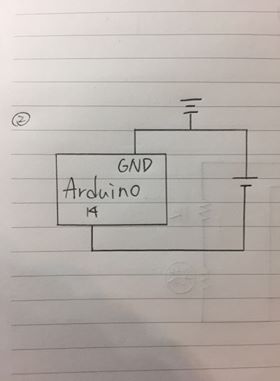 ②
GND
Arduino